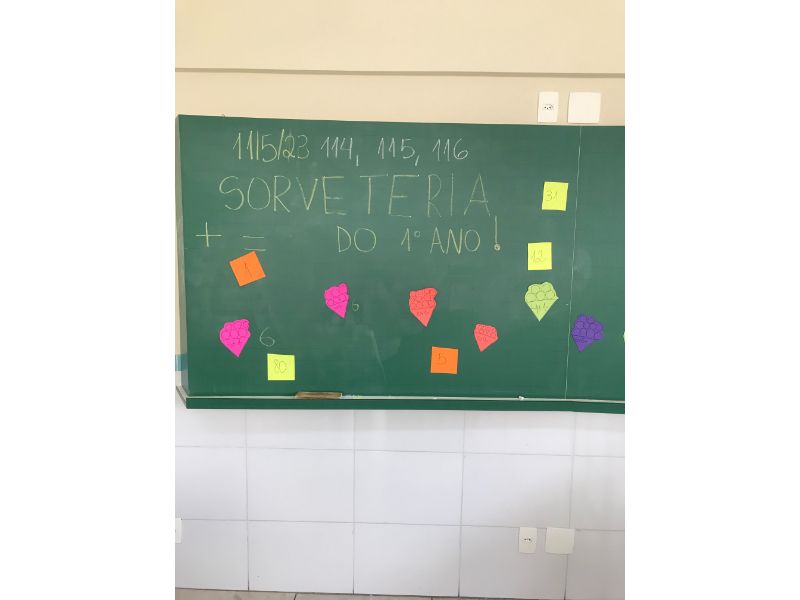 11/5/23 114, 115, 116
SORVETERIA
+ = DO 1º ANO!
31
12
1
6
6
80
5